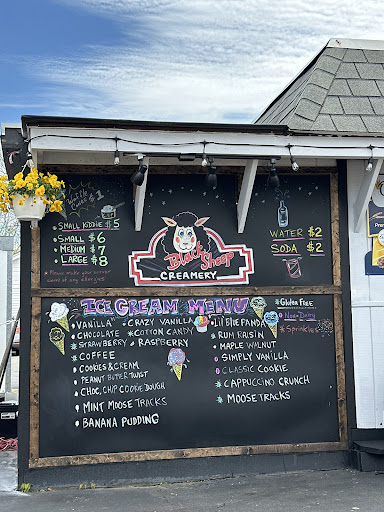 Waffle
Cones $1
Small Kiddie $5
Small $6
Medium $7
Large $8
* Please make your server
aware of any allergies
Black Sheep
CREAMERY
WATER $2
SODA $2
ICE CREAM MENU
* Gluten Free
* Non-Dairy
* Sprinkles
* VANILLA
* CHOCOLATE
* STRAWBERRY
* COFFEE
* COOKIES & CREAM
* PEANUT BUTTER TWIST
* CHOC. CHIP COOKIE DOUGH
* MINT MOOSE TRACKS
* BANANA PUDDING
* CRAZY VANILLA
* COTTON CANDY
* RASPBERRY
* LIL BLUE PANDA
* RUM RAISIN
* MAPLE WALNUT
SIMPLY VANILLA
CLASSIC COOKIE
* CAPPUCCINO CRUNCH
* MOOSE TRACKS